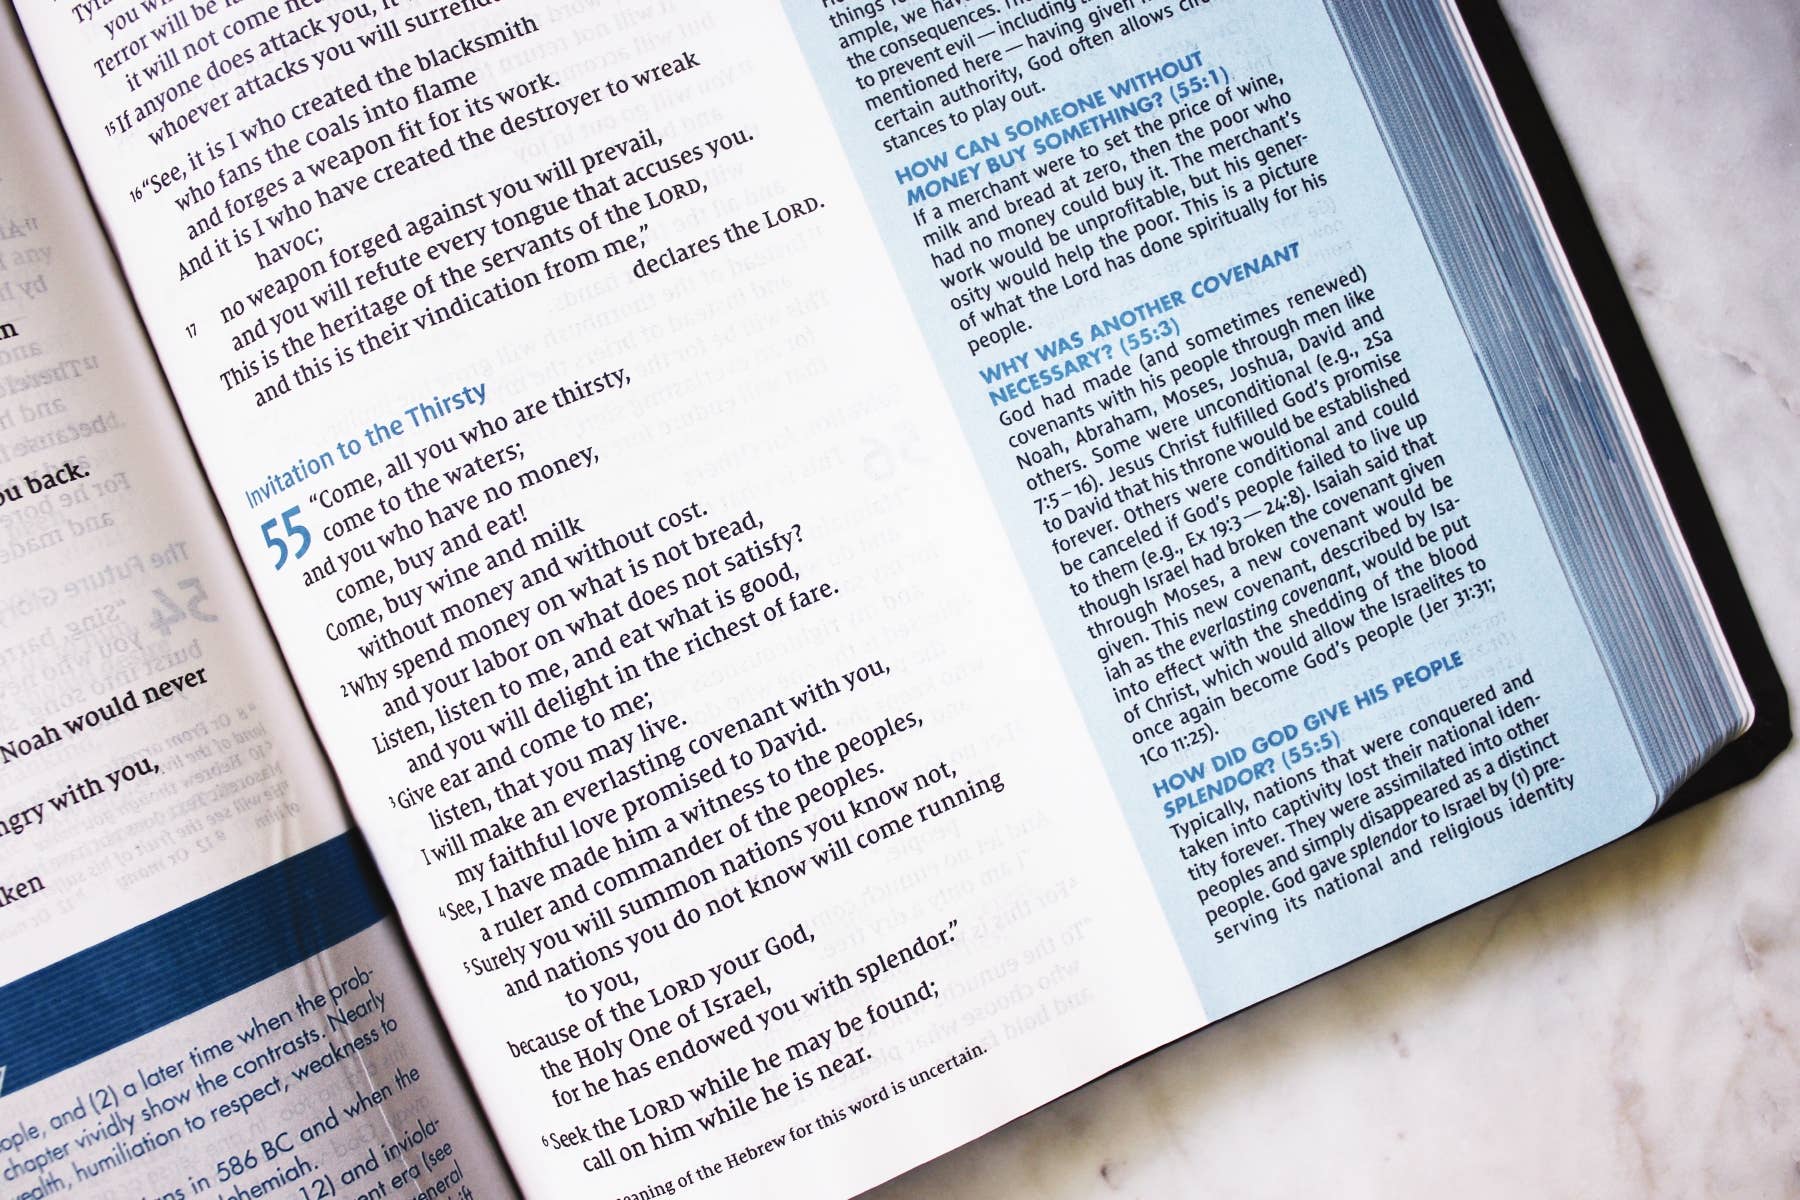 Terror will be
it will not come ne
15 If anyone does attack you, it
whoever attacks you will surrende
16 “See, it is I who created the blacksmith
who fans the coals into flame
and forges a weapon fit for its work.
And it is I who have created the destroyer to wreak
havoc;
17 no weapon forged against you will prevail,
and you will refute every tongue that accuses you.
This is the heritage of the servants of the LORD,
and this is their vindication from me,”
declares the LORD.
Invitation to the Thirsty
55 “Come, all you who are thirsty,
come to the waters;
and you who have no money,
come, buy and eat!
Come, buy wine and milk
without money and without cost.
2 Why spend money on what is not bread,
and your labor on what does not satisfy?
Listen, listen to me, and eat what is good,
and you will delight in the richest of fare.
3 Give ear and come to me;
listen, that you may live.
I will make an everlasting covenant with you,
my faithful love promised to David.
4 See, I have made him a witness to the peoples,
a ruler and commander of the peoples.
5 Surely you will summon nations you know not,
and nations you do not know will come running
to you,
because of the LORD your God,
the Holy One of Israel,
for he has endowed you with splendor.”
6 Seek the LORD while he may be found;
call on him while he is near.
eaning of the Hebrew for this word is uncertain.
ample, we hav
the consequences.
to prevent evil — including
mentioned here — having given
certain authority, God often allows circ
stances to play out.
HOW CAN SOMEONE WITHOUT
MONEY BUY SOMETHING? (55:1)
If a merchant were to set the price of wine,
milk and bread at zero, then the poor who
had no money could buy it. The merchant’s
work would be unprofitable, but his gener-
osity would help the poor. This is a picture
of what the Lord has done spiritually for his
people.
WHY WAS ANOTHER COVENANT
NECESSARY? (55:3)
God had made (and sometimes renewed)
covenants with his people through men like
Noah, Abraham, Moses, Joshua, David and
others. Some were unconditional (e.g., 2Sa
7:5–16). Jesus Christ fulfilled God’s promise
to David that his throne would be established
forever. Others were conditional and could
be canceled if God’s people failed to live up
to them (e.g., Ex 19:3—24:8). Isaiah said that
though Israel had broken the covenant given
through Moses, a new covenant would be
given. This new covenant, described by Isa-
iah as the everlasting covenant, would be put
into effect with the shedding of the blood
of Christ, which would allow the Israelites to
once again become God’s people (Jer 31:31;
1Co 11:25).
HOW DID GOD GIVE HIS PEOPLE
SPLENDOR? (55:5)
Typically, nations that were conquered and
taken into captivity lost their national iden-
tity forever. They were assimilated into other
peoples and simply disappeared as a distinct
people. God gave splendor to Israel by (1) pre-
serving its national and religious identity
ou back.
Noah would never
ngry with you,
ken
ople, and (2) a later time when the prob-
chapter vividly show the contrasts. Nearly
ealth, humiliation to respect, weakness to
ns in 586 BC and when the
ehemiah.
12) and inviola-
ent era (see
general